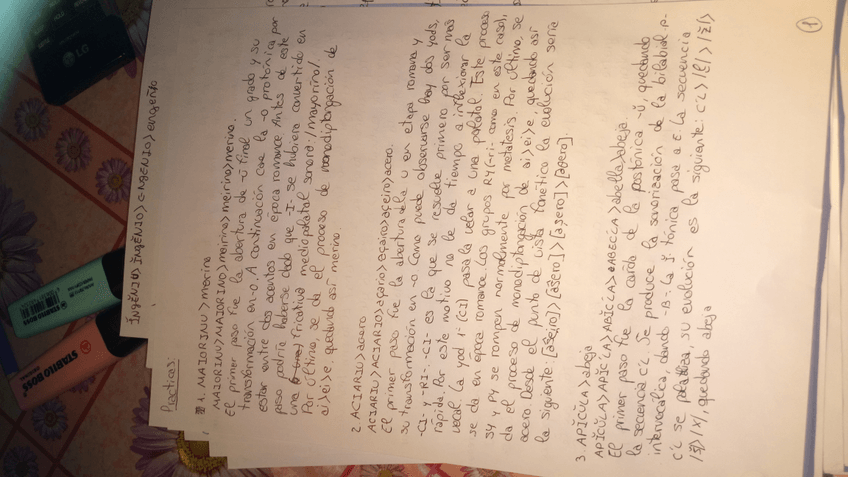 Practicas:
1. MAIORINU > merina
MAIORINU > MAIORINO > mairina > meirino > merino.
El primer paso fue la abertura de -ŭ final un grado y su
transformación en -o. A continuación cae la -o protónica por
estar entre dos acentos en época romance. Antes de este
paso podría haberse dado que -I- se hubiera convertido en
una fricativa mediopalatal sonora: /mayorino/.
Por último, se da el proceso de monodiptongación de
ai > ei > e, quedando así merino.
2 ACIARIU > acero
ACIARIU > ACIARIO > açario > açairo > açeiro > acero.
El primer paso fue la abertura de la u en etapa romana y
su transformación en -o. Como puede observarse hay dos yods,
-CI- y -RI-. -CI- es la que se resuelve primero por ser más
rápida. Por este motivo no le da tiempo a inflexionar la
vocal. La yod 1ª (CI) pasa la velar a una palatal. Este proceso
se da en época romance. Los grupos RY (-ri- como en este caso),
SY y PY se rompen normalmente por metátesis. Por último, se
da el proceso de monodiptongación de ai > ei > e, quedando así
acero. Desde el punto de vista fonético la evolución sería
la siguiente:
3. APĬCŬLA > abeja
El primer paso fue la caída de la postónica -ŭ, quedando
la secuencia C'L. Se produce la sonorización de la bilabial -p-
intervocálica, dando -B-. La Ĭ tónica pasa a E. La secuencia
C'L se palataliza, su evolución es la siguiente: C'L >
/x/, quedando abeja
INGĔNIU > INGĔNIO > ENGĔNIO > engeño
LG
STABILO BOSS
1